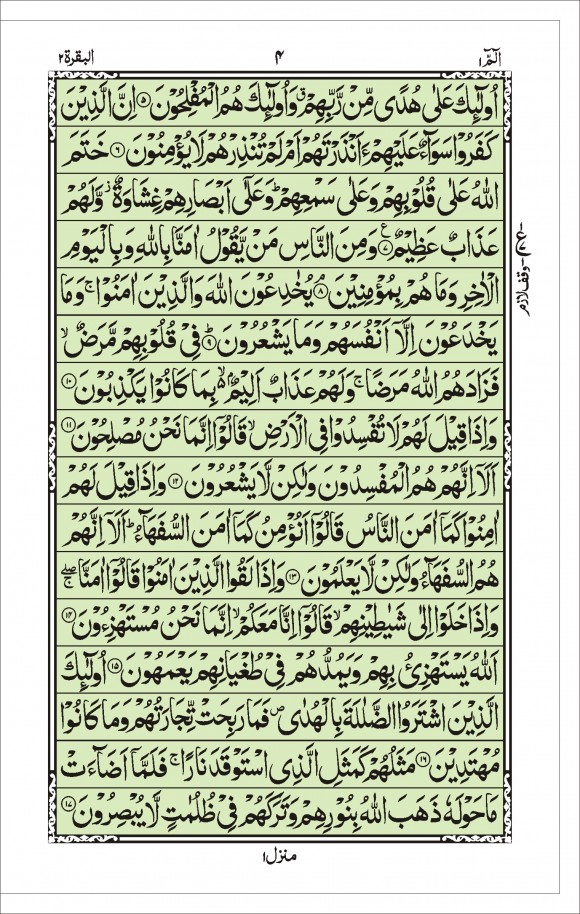 الٓمّٓ ۱ ۴ البقرة ۲
اُولٰٓئِكَ عَلٰى هُدًى مِّنْ رَّبِّهِمْ ۗ وَاُولٰٓئِكَ هُمُ الْمُفْلِحُوْنَ ۝۵ اِنَّ الَّذِيْنَ
كَفَرُوْا سَوَآءٌ عَلَيْهِمْ ءَاَنْذَرْتَهُمْ اَمْ لَمْ تُنْذِرْهُمْ لَا يُؤْمِنُوْنَ ۝۶ خَتَمَ
اللّٰهُ عَلٰى قُلُوْبِهِمْ وَعَلٰى سَمْعِهِمْ ؕ وَعَلٰٓى اَبْصَارِهِمْ غِشَاوَةٌ ز وَّلَهُمْ
عَذَابٌ عَظِيْمٌ ۝۷ ع وَمِنَ النَّاسِ مَنْ يَّقُوْلُ اٰمَنَّا بِاللّٰهِ وَبِالْيَوْمِ
ع
وقف لازم
الْاٰخِرِ وَمَا هُمْ بِمُؤْمِنِيْنَ ۝۸ۘ يُخٰدِعُوْنَ اللّٰهَ وَالَّذِيْنَ اٰمَنُوْا ۚ وَمَا
يَخْدَعُوْنَ اِلَّآ اَنْفُسَهُمْ وَمَا يَشْعُرُوْنَ ۝۹ؕ فِيْ قُلُوْبِهِمْ مَّرَضٌ ۙ
فَزَادَهُمُ اللّٰهُ مَرَضًا ۚ وَلَهُمْ عَذَابٌ اَلِيْمٌۢ ۙ بِمَا كَانُوْا يَكْذِبُوْنَ ۝۱۰
وَاِذَا قِيْلَ لَهُمْ لَا تُفْسِدُوْا فِي الْاَرْضِ ۙ قَالُوْٓا اِنَّمَا نَحْنُ مُصْلِحُوْنَ ۝۱۱
اَلَآ اِنَّهُمْ هُمُ الْمُفْسِدُوْنَ وَلٰكِنْ لَّا يَشْعُرُوْنَ ۝۱۲ وَاِذَا قِيْلَ لَهُمْ
اٰمِنُوْا كَمَآ اٰمَنَ النَّاسُ قَالُوْٓا اَنُؤْمِنُ كَمَآ اٰمَنَ السُّفَهَآءُ ؕ اَلَآ اِنَّهُمْ
هُمُ السُّفَهَآءُ وَلٰكِنْ لَّا يَعْلَمُوْنَ ۝۱۳ وَاِذَا لَقُوا الَّذِيْنَ اٰمَنُوْا قَالُوْٓا اٰمَنَّا ۚۖ
وَاِذَا خَلَوْا اِلٰى شَيٰطِيْنِهِمْ ۙ قَالُوْٓا اِنَّا مَعَكُمْ ۙ اِنَّمَا نَحْنُ مُسْتَهْزِءُوْنَ ۝۱۴
اَللّٰهُ يَسْتَهْزِئُ بِهِمْ وَيَمُدُّهُمْ فِيْ طُغْيَانِهِمْ يَعْمَهُوْنَ ۝۱۵ اُولٰٓئِكَ
الَّذِيْنَ اشْتَرَوُا الضَّلٰلَةَ بِالْهُدٰى ۪ فَمَا رَبِحَتْ تِّجَارَتُهُمْ وَمَا كَانُوْا
مُهْتَدِيْنَ ۝۱۶ مَثَلُهُمْ كَمَثَلِ الَّذِي اسْتَوْقَدَ نَارًا ۚ فَلَمَّآ اَضَآءَتْ
مَا حَوْلَهٗ ذَهَبَ اللّٰهُ بِنُوْرِهِمْ وَتَرَكَهُمْ فِيْ ظُلُمٰتٍ لَّا يُبْصِرُوْنَ ۝۱۷
منزل ۱